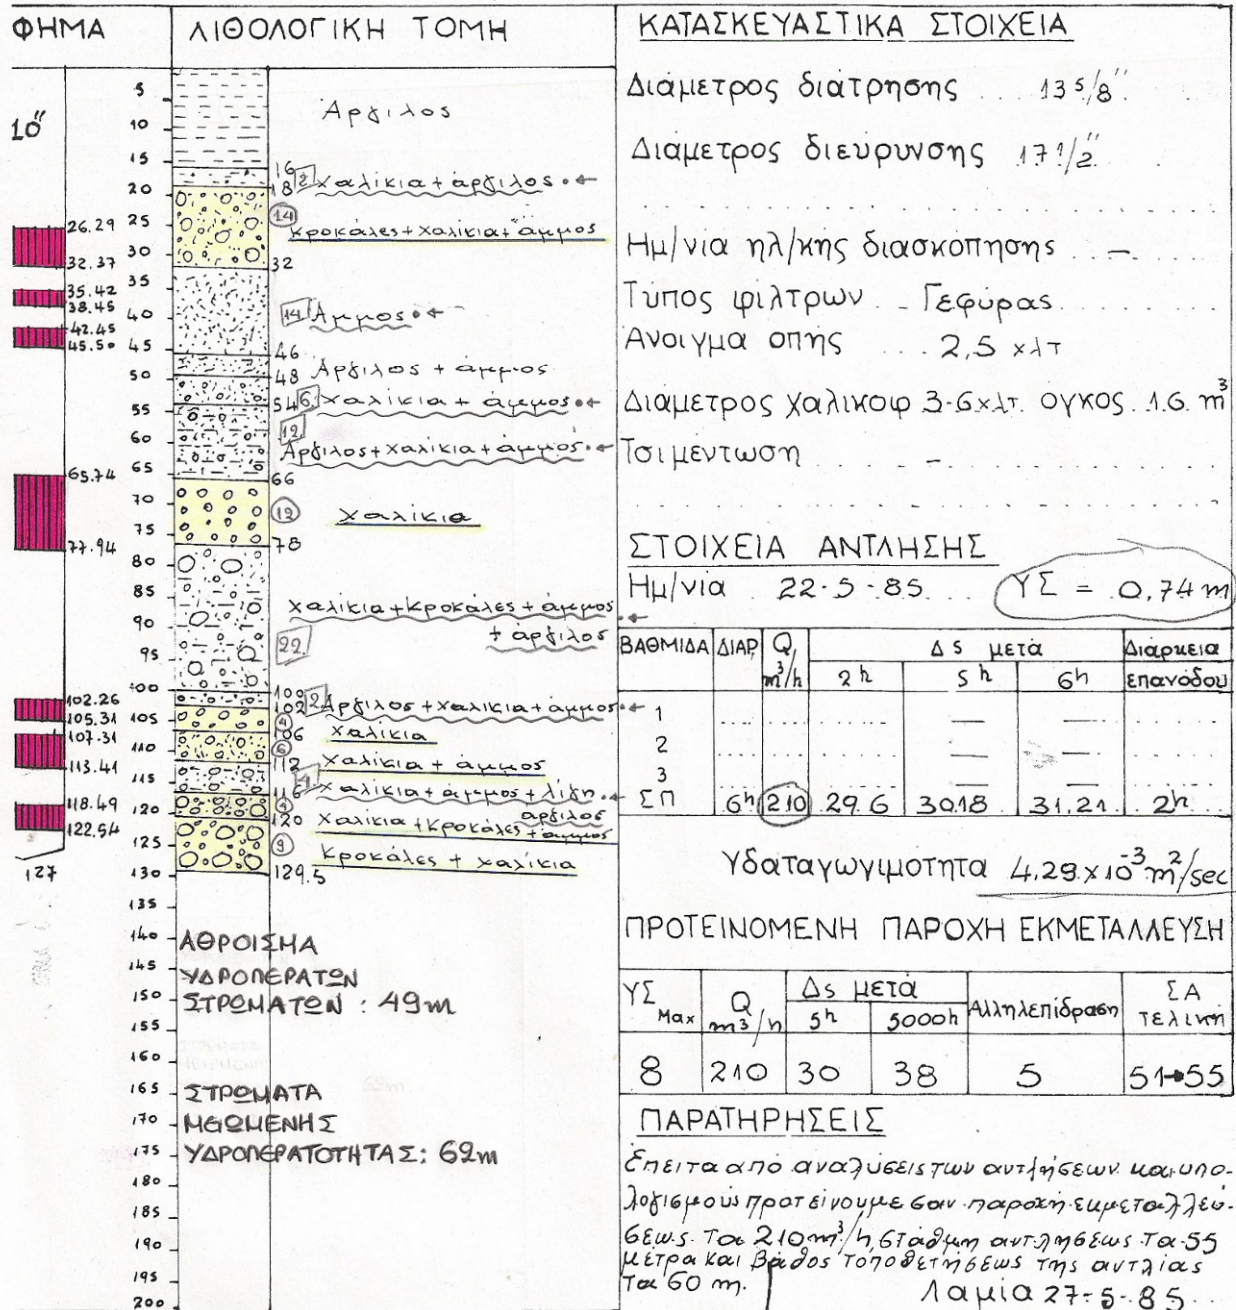 ΦΗΜΑ
ΛΙΘΟΛΟΓΙΚΗ ΤΟΜΗ
10"
26.29
32.37
35.42
38.45
42.45
45.50
65.74
77.94
102.26
105.31
107.31
113.41
118.49
122.54
127
5
10
15
20
25
30
35
40
45
50
55
60
65
70
75
80
85
90
95
100
105
110
115
120
125
130
135
140
145
150
155
160
165
170
175
180
185
190
195
200
Αργιλος
16
18 2 Χαλίκια + άργιλος
14
Κροκάλες + Χαλίκια + άμμος
32
14 Άμμος
46
48 Αργιλος + άμμος
54 6 Χαλίκια + άμμος
12
Αργιλος + Χαλίκια + άμμος
66
12 Χαλίκια
78
Χαλίκια + Κροκάλες + άμμος
+ αργιλος
22
100
102 2 Αργιλος + Χαλίκια + άμμος
4
106 Χαλίκια
6
112 Χαλίκια + άμμος
4
116 Χαλίκια + άμμος + λίγη
αργιλος
4
120 Χαλίκια + Κροκάλες + άμμος
9
Κροκάλες + Χαλίκια
129.5
ΑΘΡΟΙΣΜΑ
ΥΔΡΟΠΕΡΑΤΩΝ
ΣΤΡΩΜΑΤΩΝ : 49m
ΣΤΡΩΜΑΤΑ
ΜΕΙΩΜΕΝΗΣ
ΥΔΡΟΠΕΡΑΤΟΤΗΤΑΣ: 62m
ΚΑΤΑΣΚΕΥΑΣΤΙΚΑ ΣΤΟΙΧΕΙΑ
Διάμετρος διάτρησης 13 5/8"
Διάμετρος διεύρυνσης 17 1/2"
Ημ/νία ηλ/κής διασκόπησης —
Τύπος φίλτρων Γεφύρας
Ανοιγμα οπής 2,5 χλτ
Διάμετρος χαλικοφ 3-6 χλτ. ογκος 16 m³
Τσιμέντωση -
ΣΤΟΙΧΕΙΑ ΑΝΤΛΗΣΗΣ
Ημ/νία 22-5-85 ΥΣ = 0,74 m
ΒΑΘΜΙΔΑ ΔΙΑΡ Q, m³/h Δs μετά Διάρκεια επανόδου
2h 5h 6h
1 — —
2 — —
3 — —
ΣΠ 6h 210 29.6 30.18 31.21 2h
Υδαταγωγιμότητα 4.29 x 10⁻³ m²/sec
ΠΡΟΤΕΙΝΟΜΕΝΗ ΠΑΡΟΧΗ ΕΚΜΕΤΑΛΛΕΥΣΗ
ΥΣ Max Q m³/h Δs μετά Αλληλεπίδραση ΣΑ τελική
5h 5000h
8 210 30 38 5 51→55
ΠΑΡΑΤΗΡΗΣΕΙΣ
Επειτα από αναλύσεις των αντλήσεων και υπο-
λογισμούς προτείνουμε σαν παροχή εκμεταλλεύ-
σεως τα 210 m³/h, στάθμη αντλήσεως τα 55
μέτρα και βάθος τοποθετήσεως της αντλίας
τα 60 m.
Λαμία 27-5-85